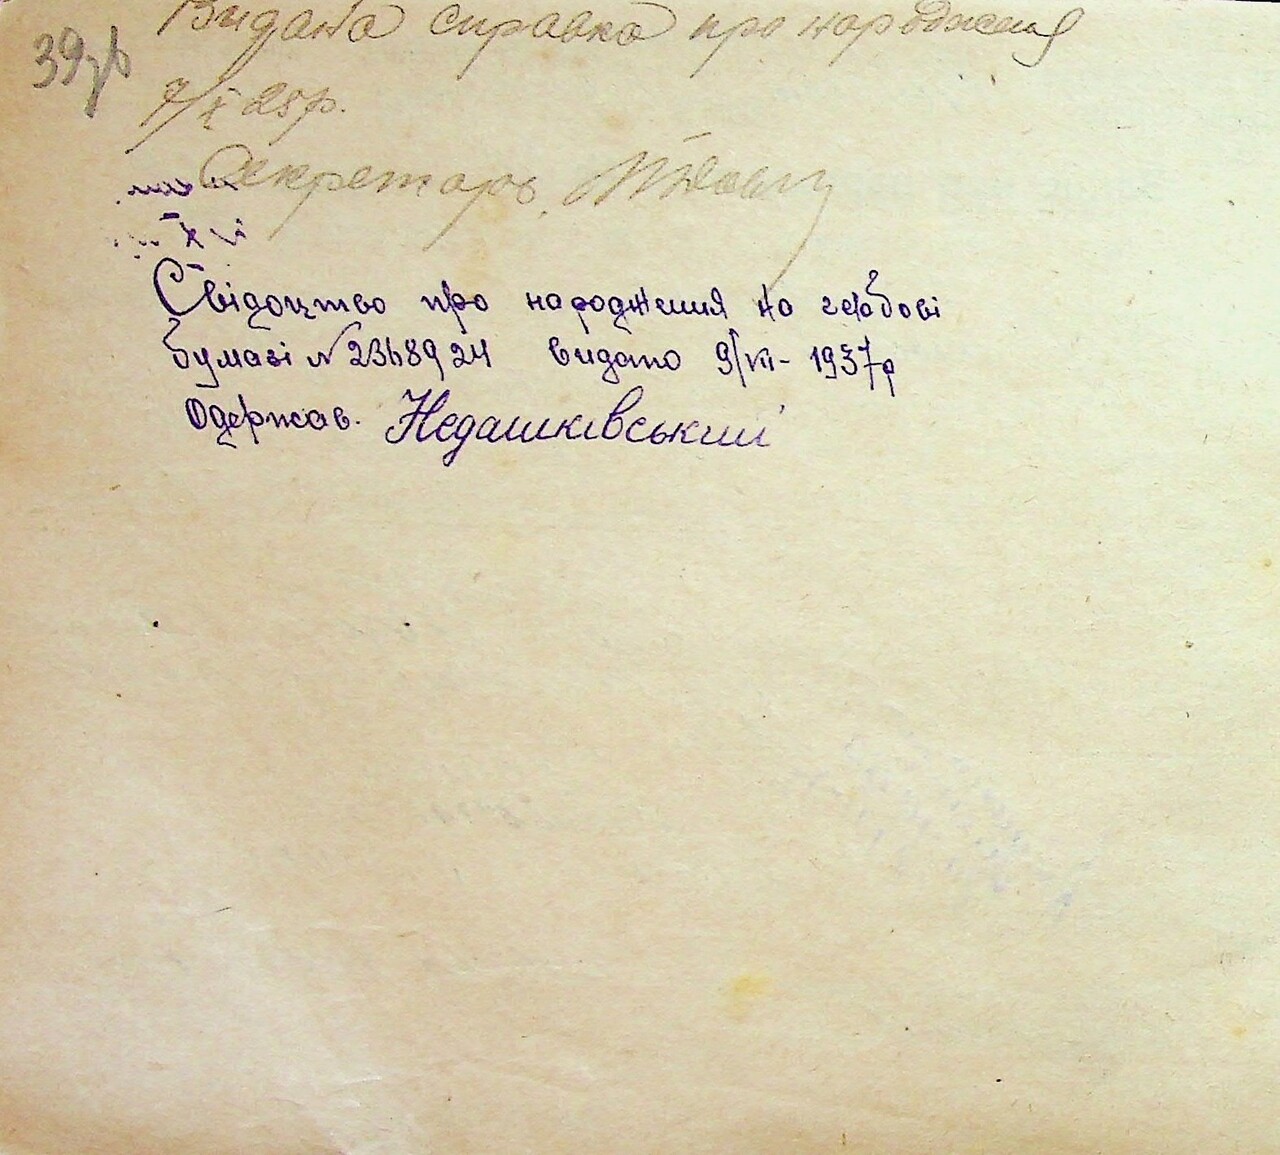 39зв
Видана справка про народження
7/X 25р.
Секретарь
Свідоцтво про народження на гербові
бумазі № 2368924 видано 9/VII - 1937р
Одержав. Недашківський